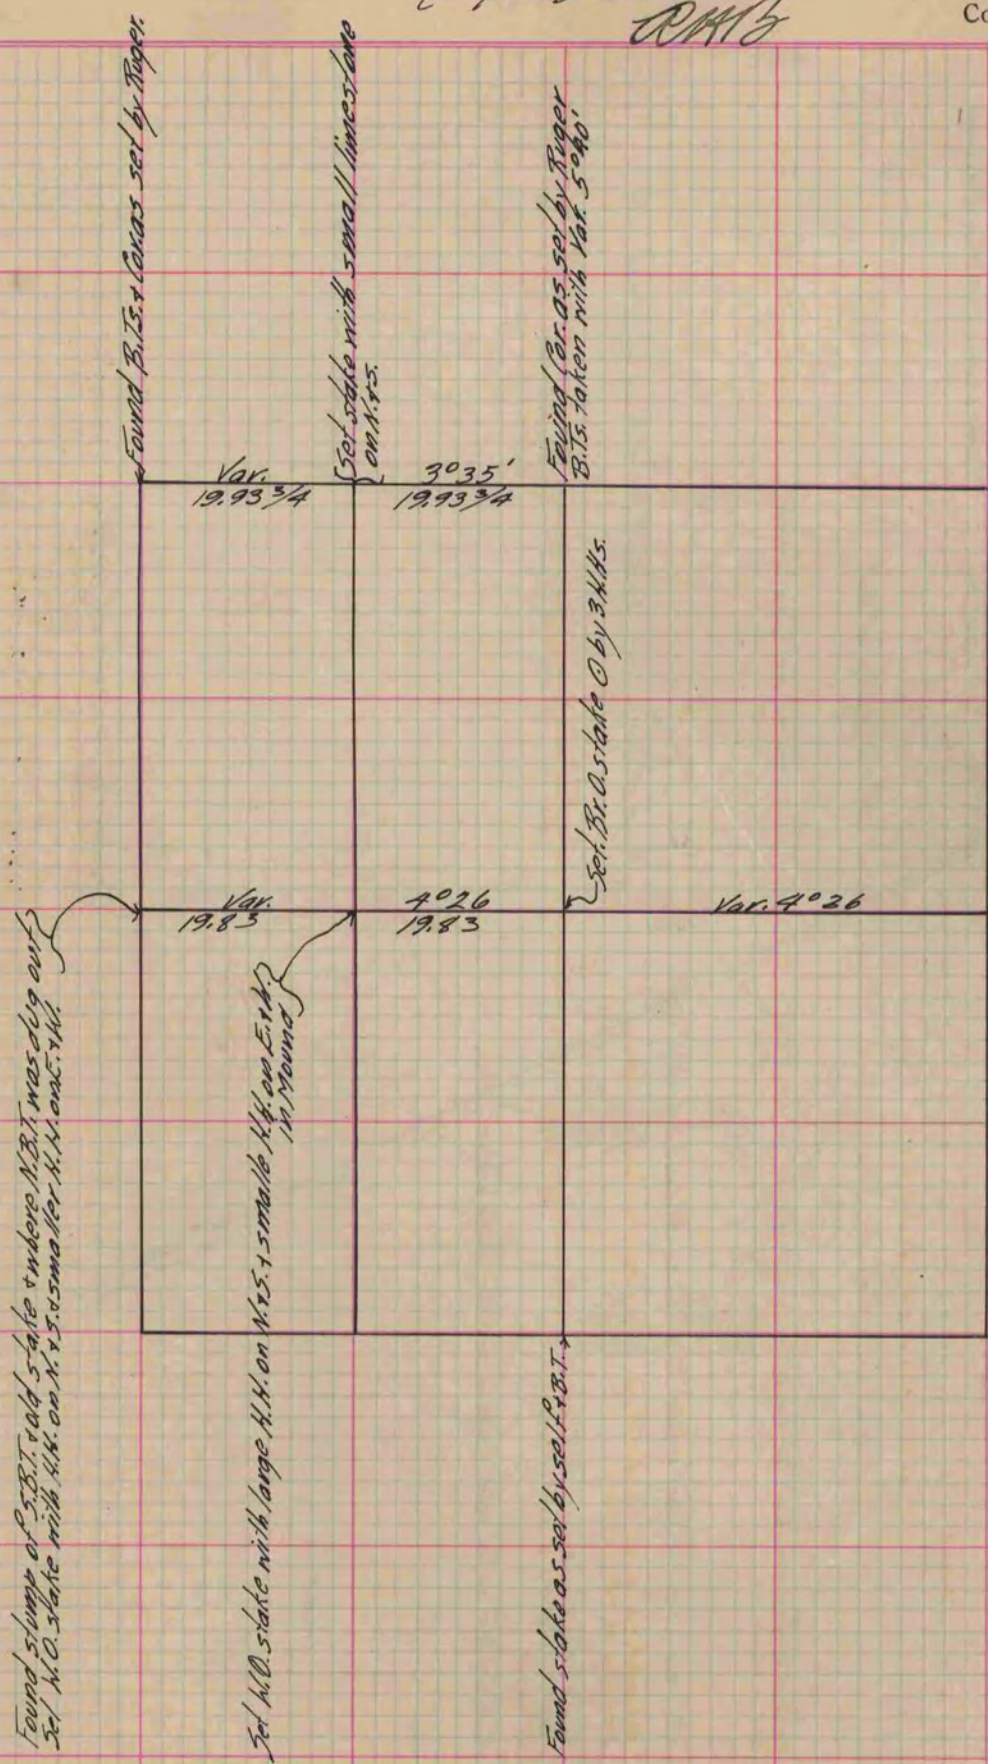 Co
Found B.Ts. & Cor. as set by Ruger.
Set stake with small limestone
on N. & S.
Found Cor. as set by Ruger
B.Ts. taken with Var. 5°40'
Var. 3°35'
19.93 3/4 19.93 3/4
Set Br. O. stake ⊙ by 3 H.Hs.
Var. 4°26 Var. 4°26
19.83 19.83
Found stump of S.B.T. & old stake & where N.B.T. was dug out
Set W.O. stake with H.H. on N. & S. & smaller H.H. on E. & W.
Set W.O. stake with large H.H. on N. & S. & smalle H.H. on E. & W.
in Mound
Found stake as set by self & B.T.